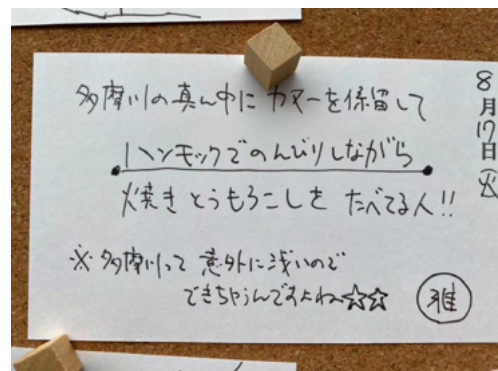 多摩川の真ん中にカヌーを保留して
ハンモックでのんびりしながら
焼きとうもろこしをたべてる人!!
※多摩川って意外に浅いので
できちゃうんですよね☆☆
雅
8月17日(火)